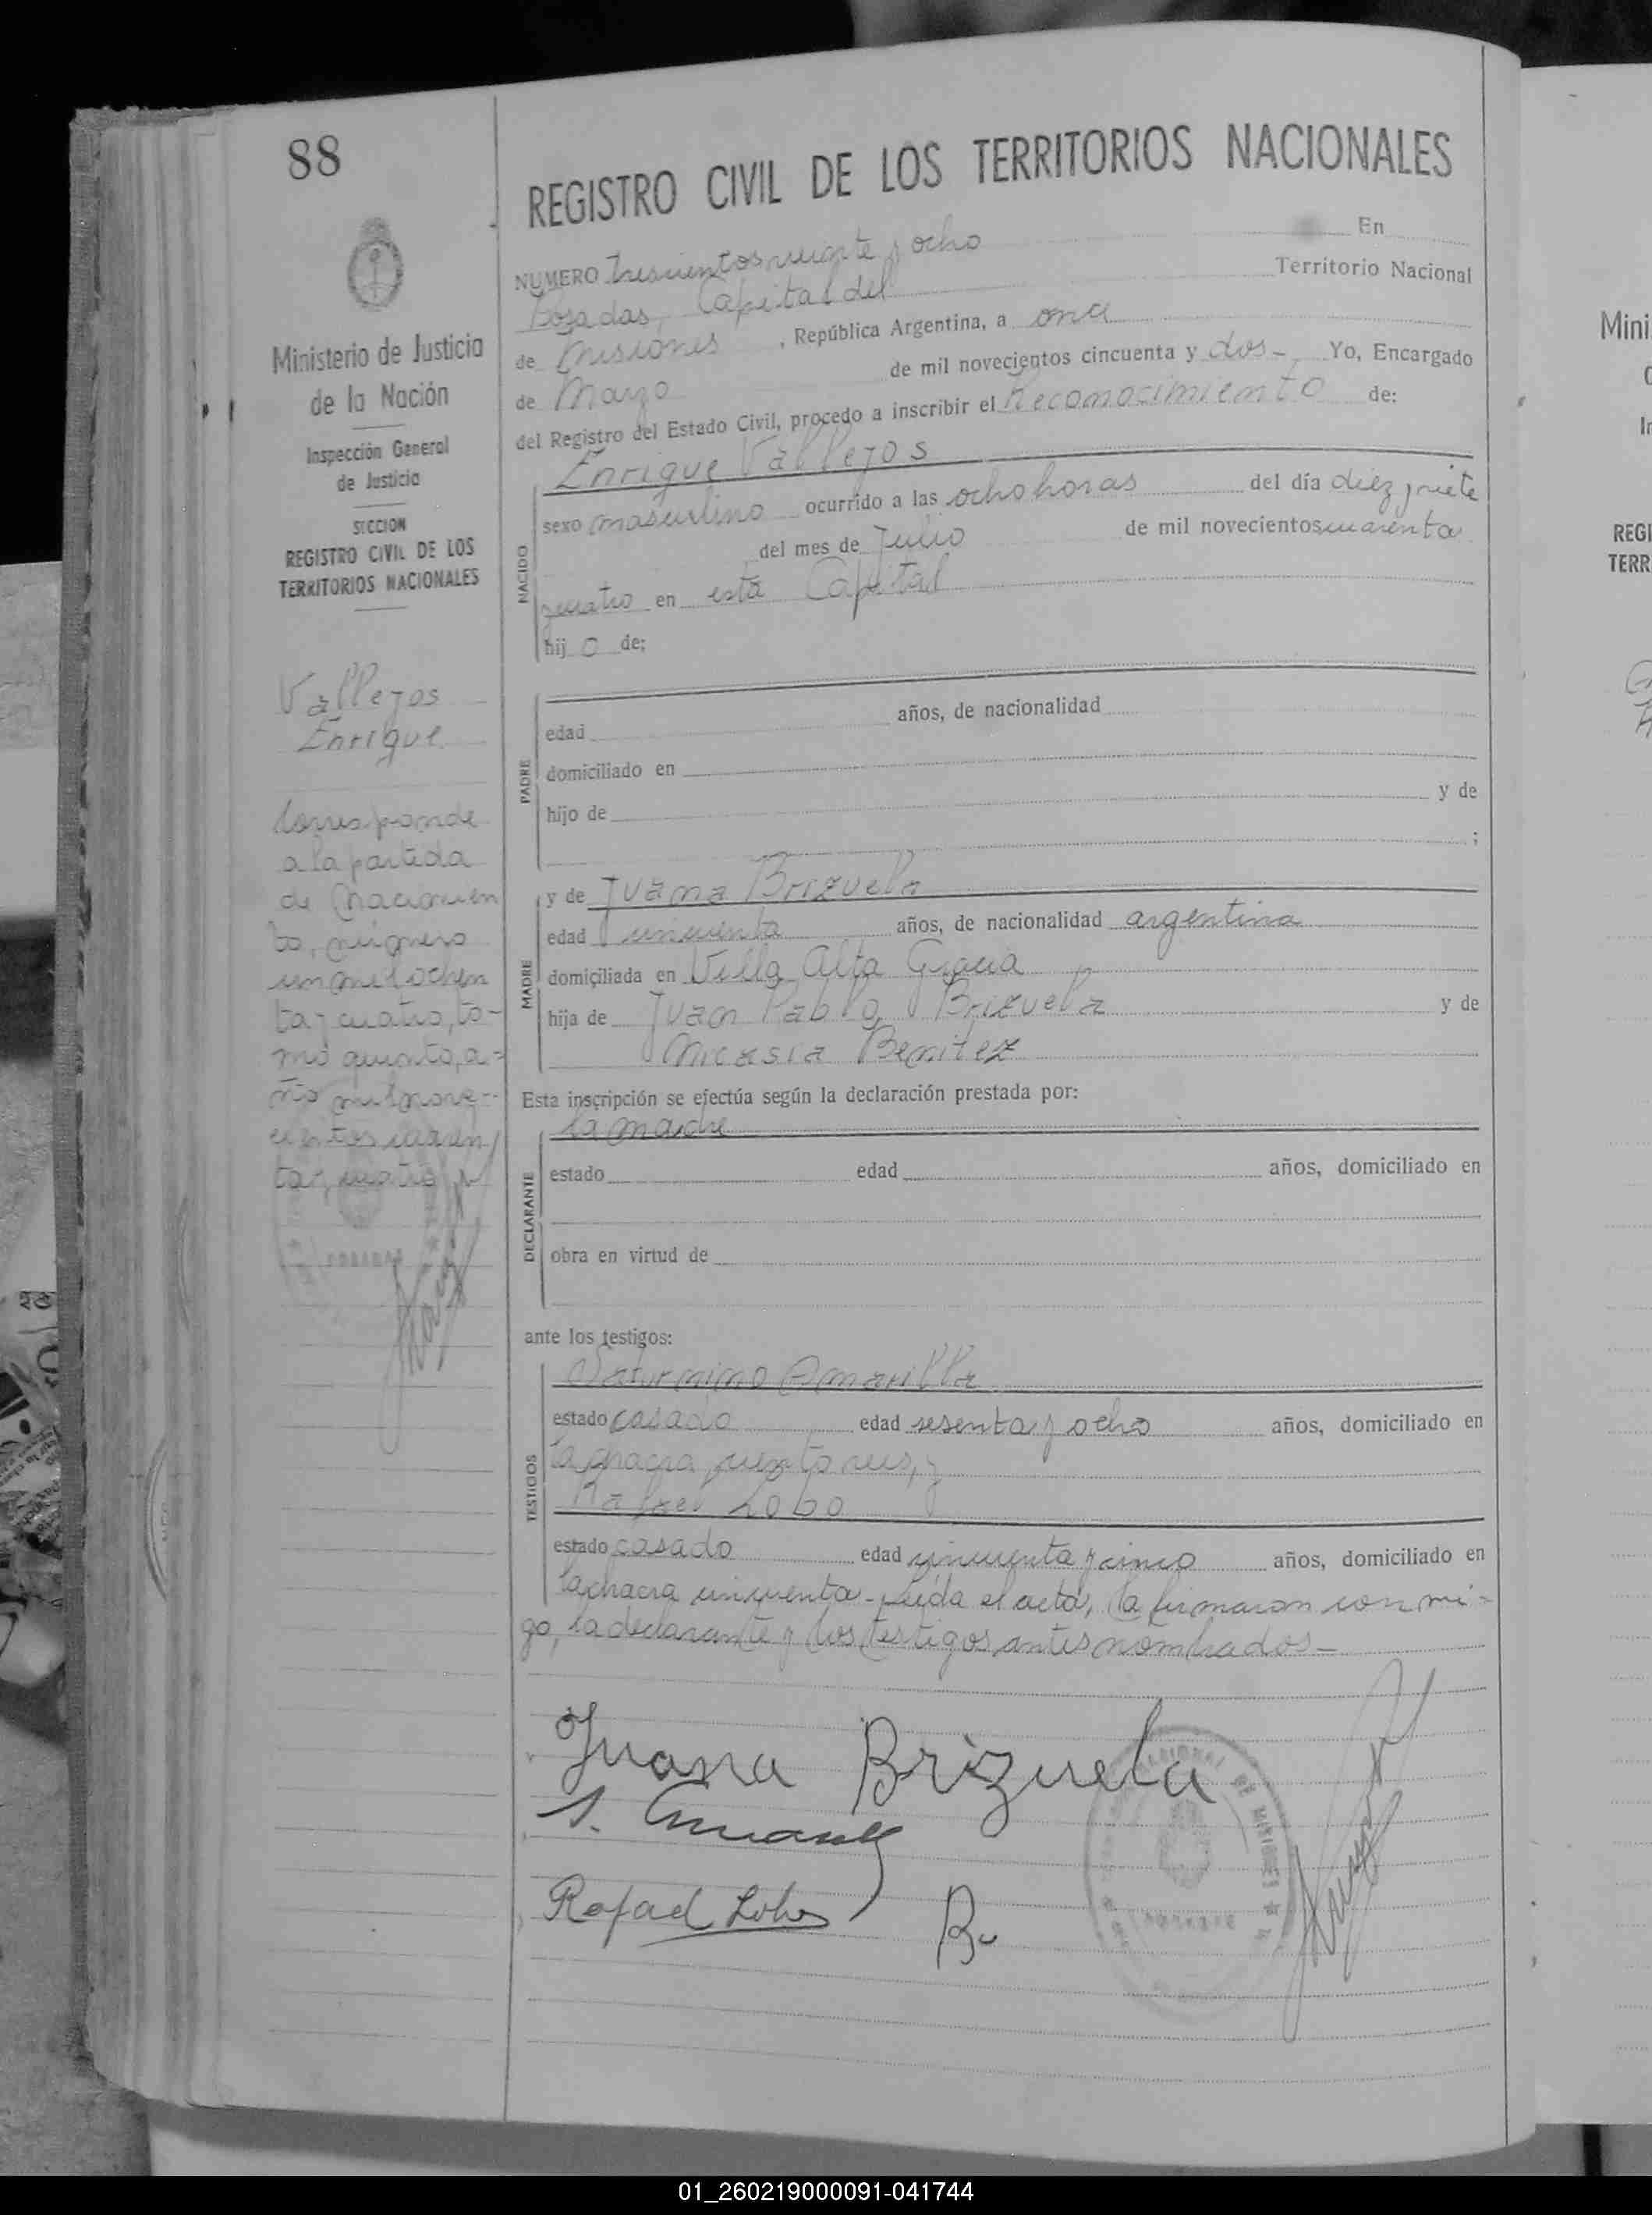 88
REGISTRO CIVIL DE LOS TERRITORIOS NACIONALES
Ministerio de Justicia
de la Nación
Inspección General
de Justicia
SECCION
REGISTRO CIVIL DE LOS
TERRITORIOS NACIONALES
Vallejos
Enrique
Corresponde
a la partida
de Nacimien
to, número
un mil ochen
ta y cuatro, to-
mo quinto, a-
ño mil nove-
cientos cuaren
ta y cuatro
NUMERO Trescientos veinte y ocho En
Posadas, Capital del Territorio Nacional
de Misiones, República Argentina, a once
de Marzo de mil novecientos cincuenta y dos- Yo, Encargado
del Registro del Estado Civil, procedo a inscribir el Reconocimiento de:
Enrique Vallejos
NACIDO
sexo masculino ocurrido a las ocho horas del día diez y siete
del mes de Julio de mil novecientos cuarenta
y cuatro en esta Capital
hijo de:
PADRE
edad años, de nacionalidad
domiciliado en
hijo de y de
;
MADRE
y de Juana Brizuela
edad cincuenta años, de nacionalidad argentina
domiciliada en Villa Alta Gracia
hija de Juan Pablo Brizuela y de
Nicasia Benitez
Esta inscripción se efectúa según la declaración prestada por:
la madre
DECLARANTE
estado edad años, domiciliado en
obra en virtud de
ante los testigos:
Saturnino Amarilla
TESTIGOS
estado casado edad sesenta y ocho años, domiciliado en
la chacra ciento seis, y
Rafael Lobo
estado casado edad cincuenta y cinco años, domiciliado en
la chacra cincuenta- Leída el acta, la firmaron conmi-
go, la declarante y los testigos antes nombrados-
Juana Brizuela
Rafael Lobo
Mini
REGI
TERR
01_260219000091-041744